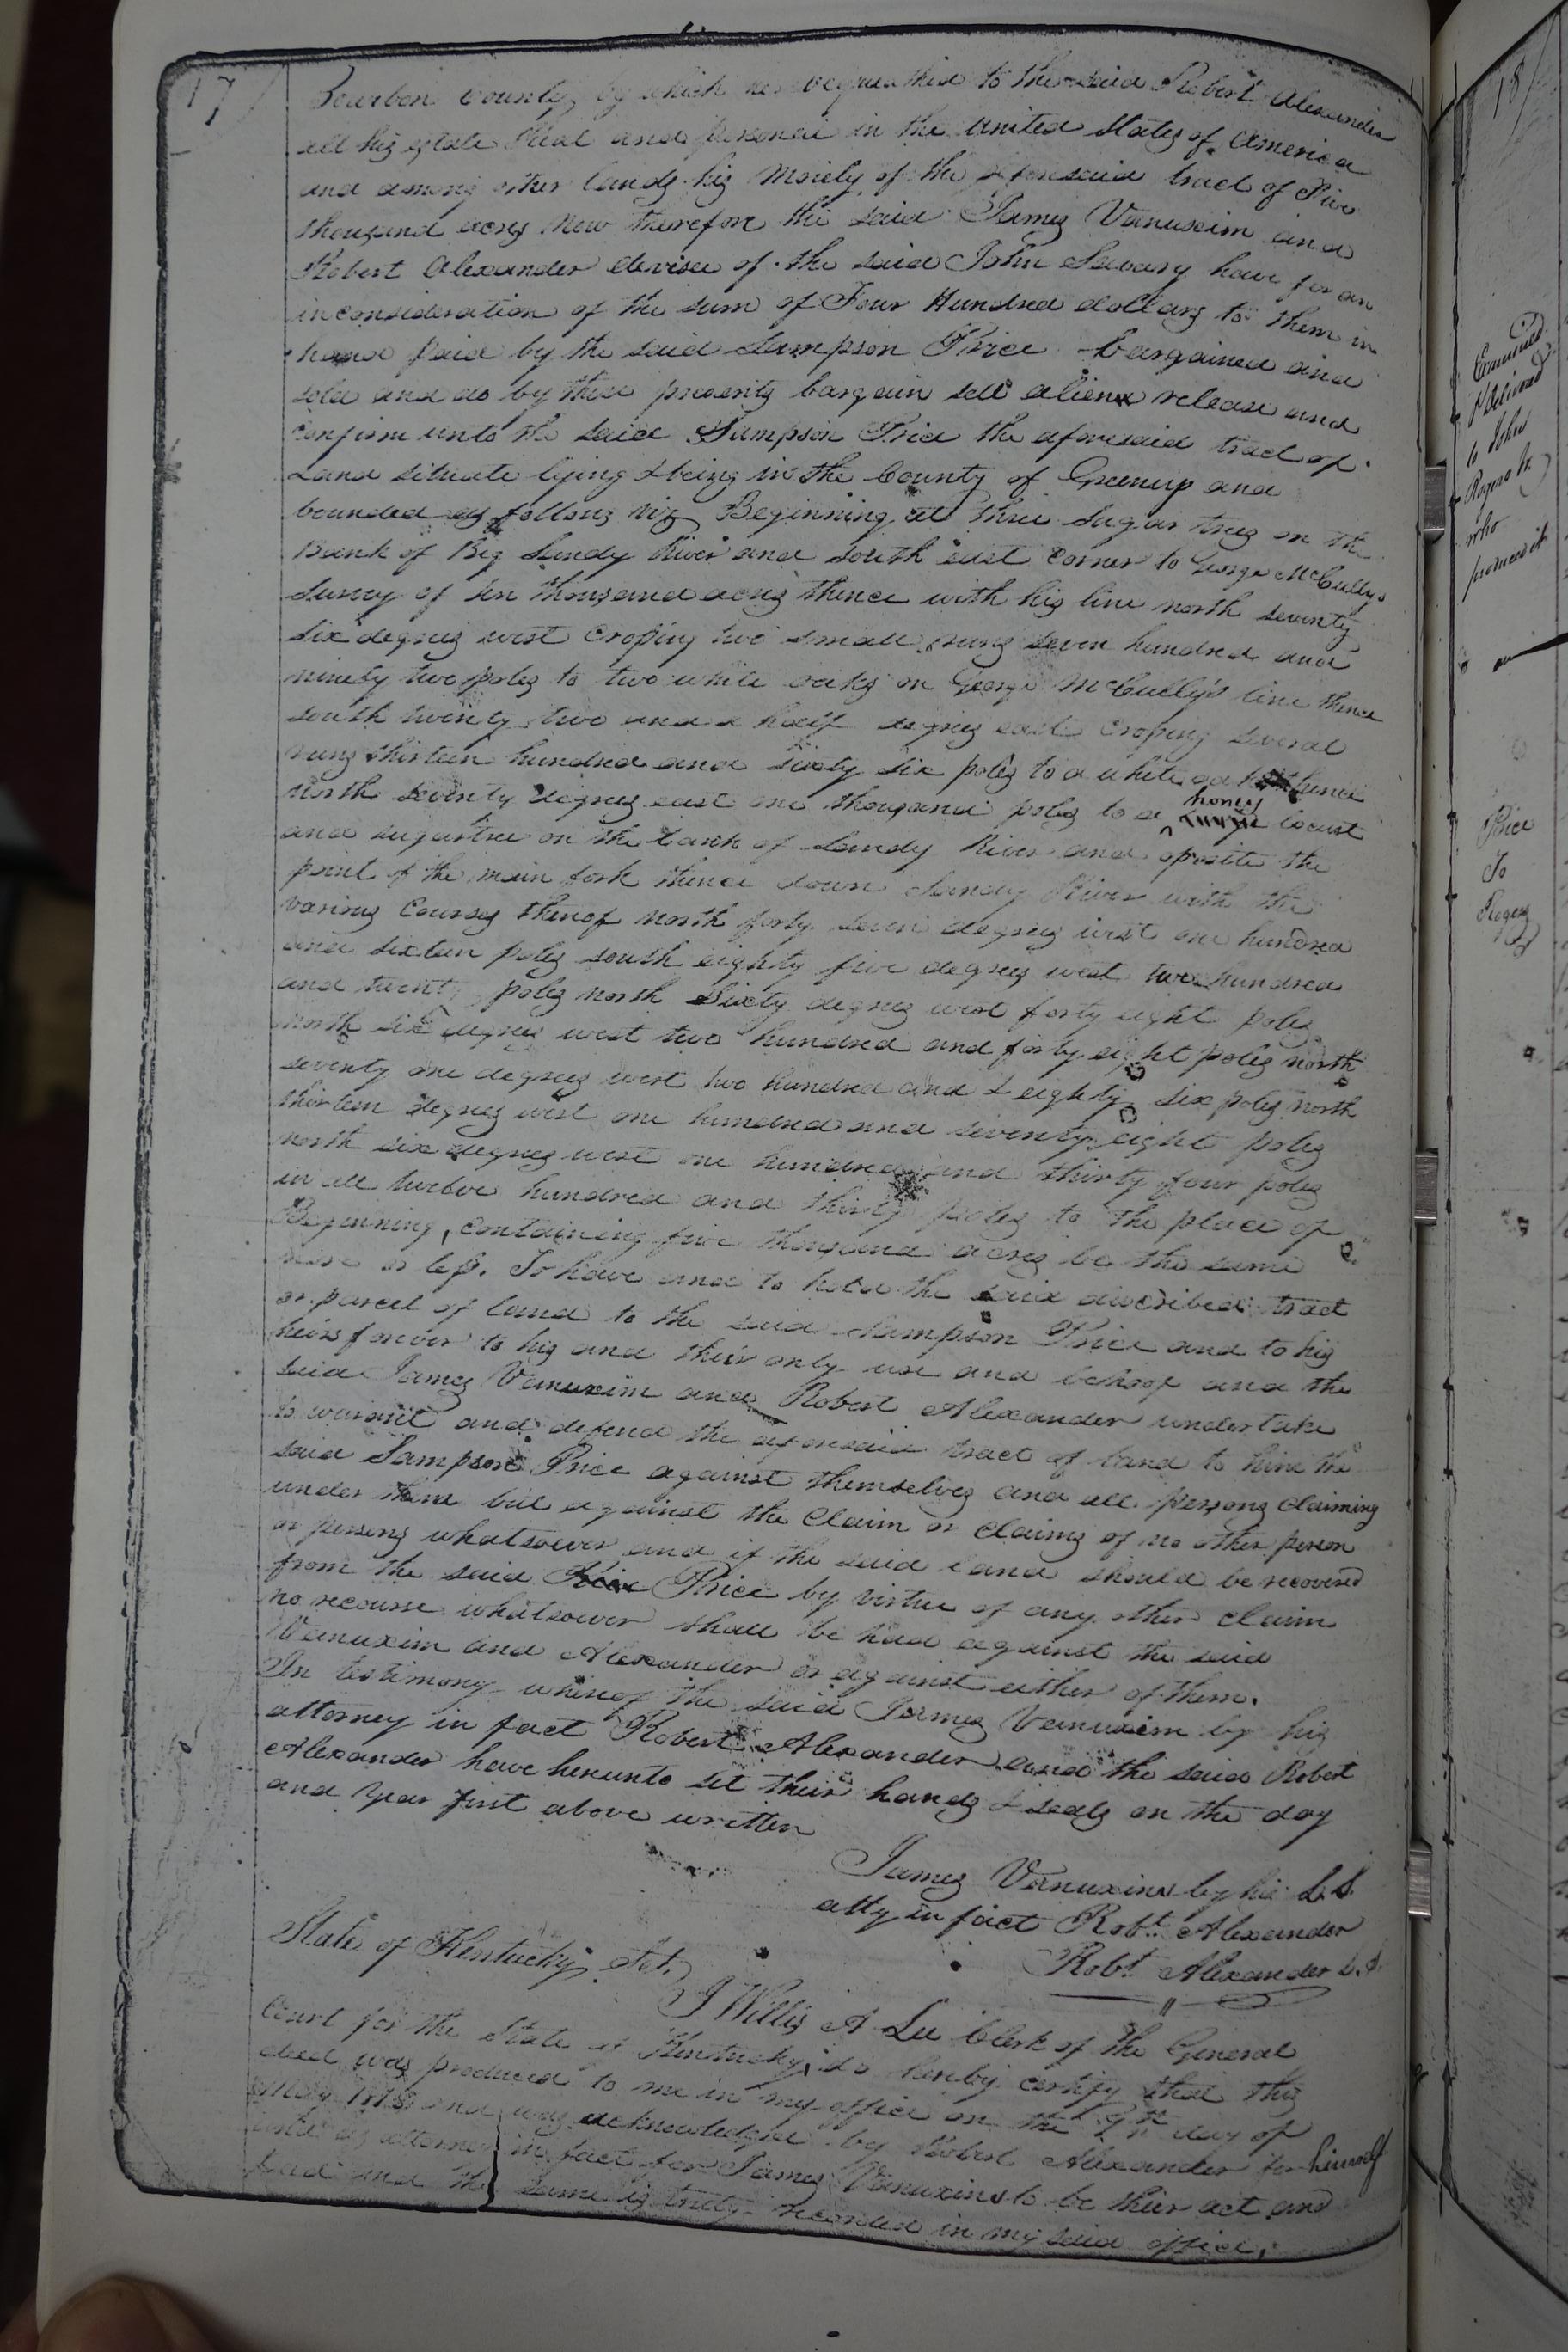 17
Bourbon County, by which he bequeathed to the said Robert Alexander
all his estate Real and personal in the United States of America
and among other lands his Moiety of the aforesaid tract of Five
thousand acres Now therefore the said James Vanuxim and
Robert Alexander devisee of the said John Savary have for an
in consideration of the sum of Four Hundred dollars to them in
hand paid by the said Sampson Price bargained and
sold and do by these presents bargain sell alien release and
confirm unto the said Sampson Price the aforesaid tract of
Land situate lying & being in the County of Greenup and
bounded as follows viz Beginning at three Sugar trees on the
Bank of Big Sandy River and South east Corner to George McCullys
Survey of ten thousand acres thence with his line north seventy
six degrees west Croping two small runs seven hundred and
ninety two poles to two white oaks on George McCully's line thence
south twenty two and a half degrees east Croping several
runs thirteen hundred and sixty six poles to a white oak thence
North seventy degrees east one thousand poles to a honey locust
and sugartree on the bank of Sandy River and oposite the
point of the main fork thence down Sandy River with the
various Courses thereof north forty seven degrees west one hundred
and sixteen poles south eighty five degrees west two hundred
and twenty poles north Sixty degrees west forty eight poles
North six degrees west two hundred and forty eight poles north
seventy one degrees west two hundred and & eighty six poles north
thirteen degrees west one hundred and seventy eight poles
north six degrees west one hundred and thirty four poles
in all twelve hundred and thirty poles to the place of
Beginning, containing five thousand acres be the same
more or less. To have and to hold the said discribed tract
or parcel of land to the said Sampson Price and to his
heirs forever to his and their only use and behoof and the
said James Vanuxim and Robert Alexander undertake
to warrant and defend the aforesaid tract of land to him the
said Sampson Price against themselves and all persons claiming
under them but against the Claim or Claims of no other person
or persons whatsoever and if the said land should be recovered
from the said Price by virtue of any other claim
no recourse whatsoever shall be had against the said
Vanuxim and Alexander or against either of them.
In testimony whereof the said James Vanuxim by his
attorney in fact Robert Alexander and the said Robert
Alexander have hereunto set their hands & seals on the day
and year first above written
James Vanuxim by his L.S.
atty in fact Robt. Alexander
Robt. Alexander L.S.
State of Kentucky Sct.
I Willis A Lee Clerk of the General
Court for the State of Kentucky, do hereby certify that this
deed was produced to me in my office on the 9th day of
May 1818 and was acknowledged by Robert Alexander for himself
and as attorney in fact for James Vanuxim to be their act and
deed and the same is truly recorded in my said office.
18
Examined
& delivered
to John
Rogers Jr.
who
produced it
Price
To
Rogers